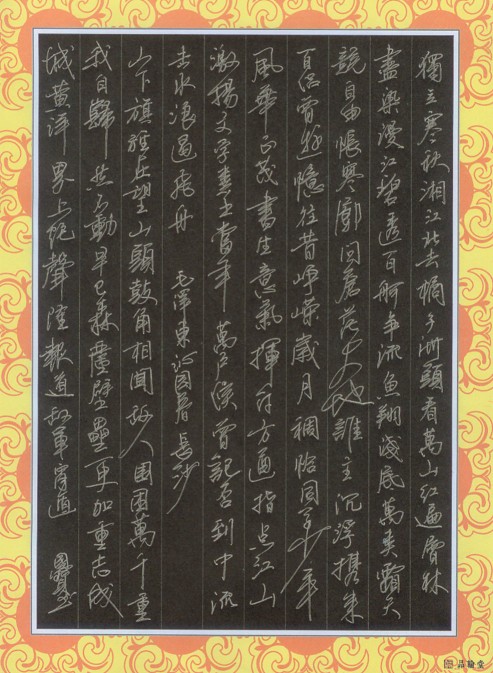 獨立寒秋湘江北去橘子洲頭看萬山紅遍層林
盡染漫江碧透百舸争流魚翔淺底萬类霜天
競自由悵寥廓问蒼茫大地誰主沉浮攜来
百侣曾遊憶往昔崢嶸歲月稠恰同学少年
風華正茂書生意氣揮斥方遒指点江山
激揚文字糞土當年萬户侯曾記否到中流
击水浪遏飛舟 毛澤東沁園春長沙
山下旗旌在望山頭鼓角相聞敌人圍困萬千重
我自巋然不動早已森嚴壁壘更加眾志成
城黄洋界上炮聲隆報道敌軍宵遁
品翰堂